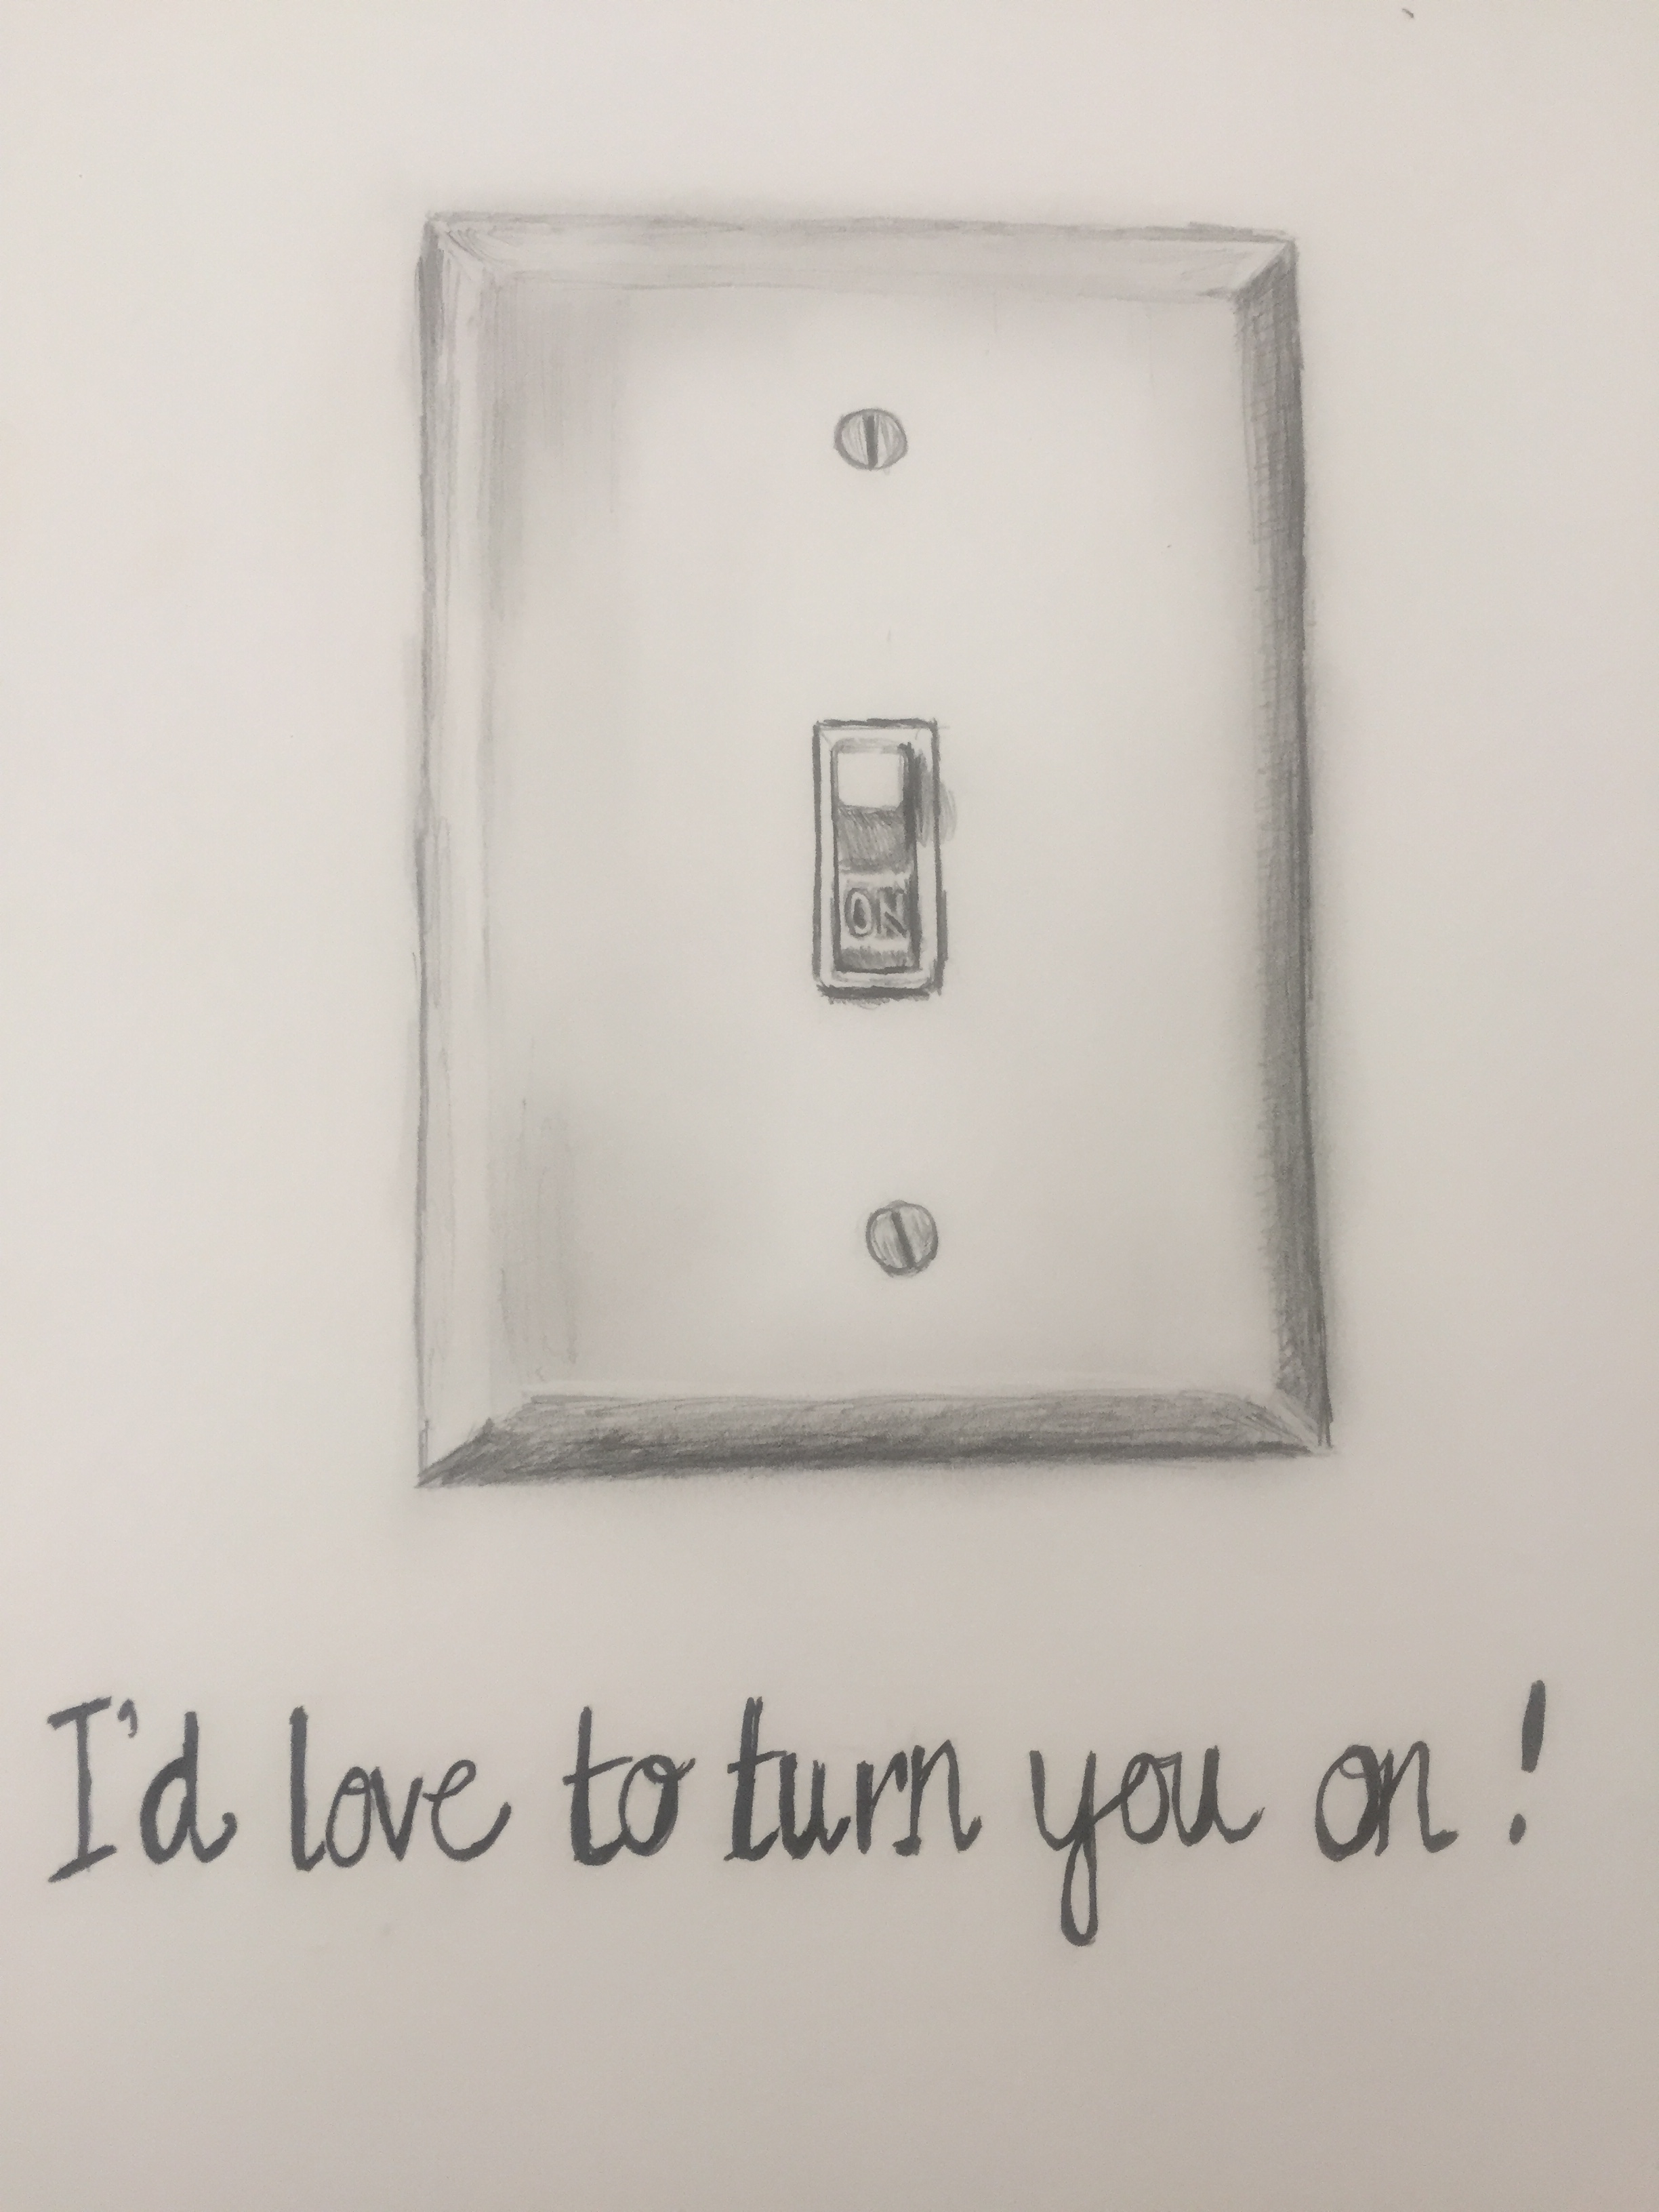 ON
I'd love to turn you on!